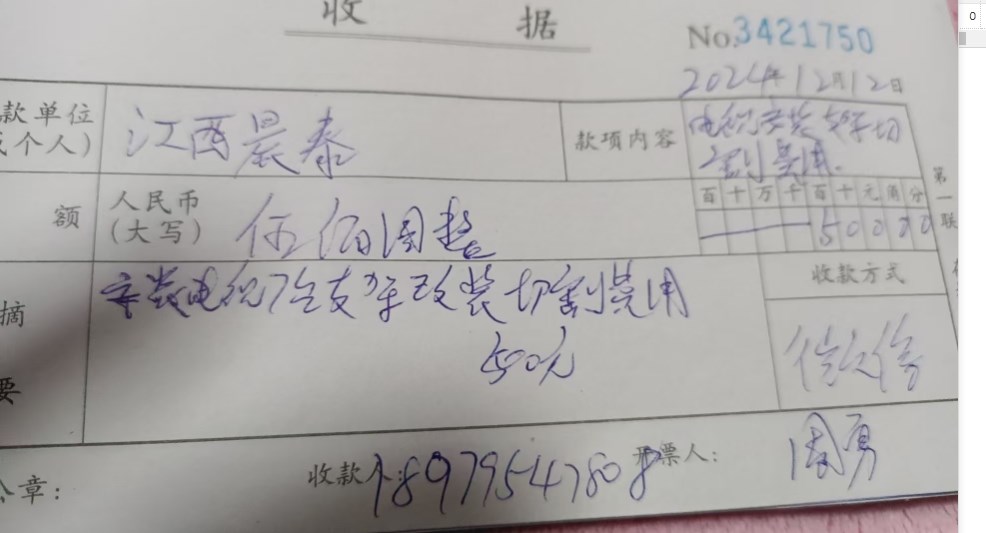 收 据
No.3421750
2024年12月12日
款单位 江西晨泰 款项内容 电视安装支架切
个人) 割费用.
百十万千百十元角分
额 人民币 伍佰圆整 50000
(大写)
第一联
安装电视7台支架改装切割费用 收款方式
摘
500元
要
收款人:18979547808 开票人: 周勇
章: